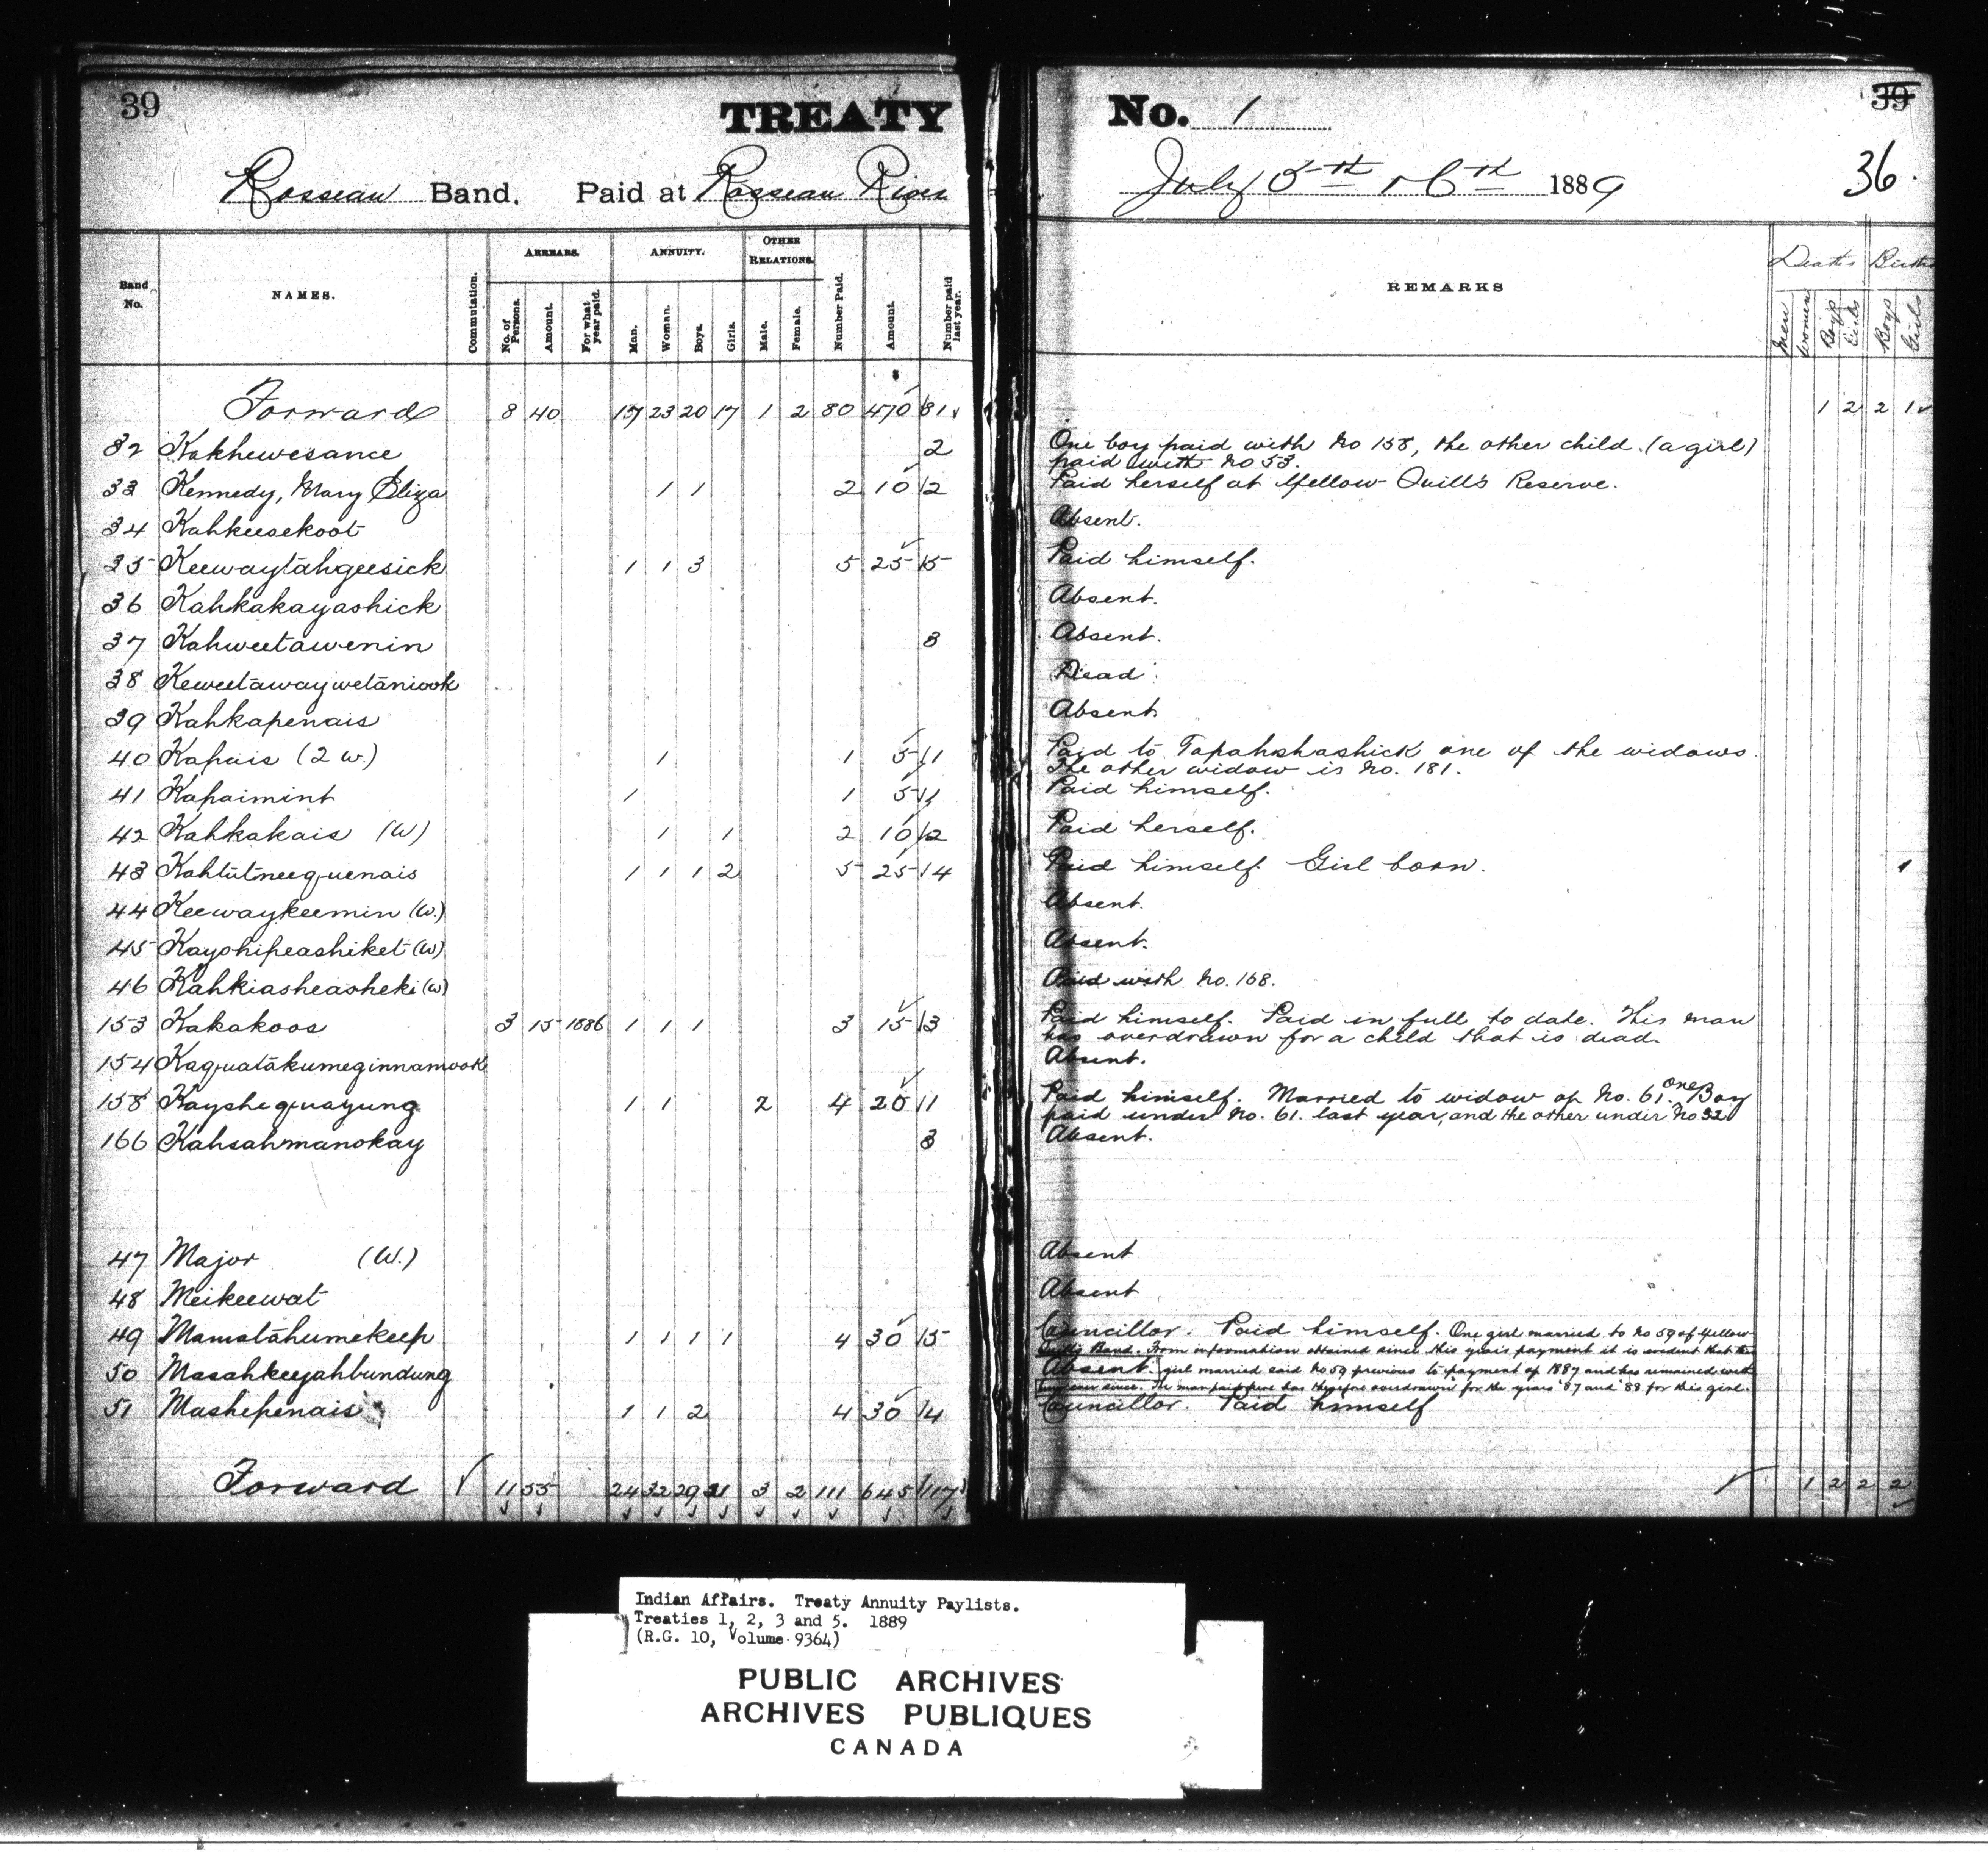 39
TREATY No. 1
39
36.
Rosseau Band. Paid at Rosseau River July 5th & 6th 1889
Band No. NAMES. Commutation. ARREARS. No. of Persons. Amount. For what year paid. ANNUITY. Man. Woman. Boys. Girls. OTHER RELATIONS. Male. Female. Number Paid. Amount. Number paid last year. REMARKS Deaths Men Women Boys Girls Births Boys Girls
$
Forward 8 40 17 23 20 17 1 2 80 470 81 1 2 2 1
32 Kakhewesance 2 One boy paid with No 158, the other child (a girl)
paid with No 53.
33 Kennedy, Mary Eliza 1 1 2 10 2 Paid herself at Yellow Quill's Reserve.
34 Kahkeesekoot Absent.
35 Keewaytahgeesick 1 1 3 5 25 5 Paid himself.
36 Kahkakayashick Absent.
37 Kahweetawenin 3 Absent.
38 Keweetawaywetaniwok Dead.
39 Kahkapenais Absent.
40 Kapuis (2 w.) 1 1 5 1 Paid to Tapahshashick one of the widows.
The other widow is No. 181.
41 Kapaimint 1 1 5 1 Paid himself.
42 Kahkakais (W) 1 1 2 10 2 Paid herself.
43 Kahtutneequenais 1 1 1 2 5 25 4 Paid himself. Girl born. 1
44 Keewaykeemin (W.) Absent.
45 Kayohipeashiket (W) Absent.
46 Kahkiasheasheki (W) Paid with No. 168.
153 Kakakoos 3 15 1886 1 1 1 3 15 3 Paid himself. Paid in full to date. This man
has overdrawn for a child that is dead.
154 Kaquatakumeginnamook Absent.
158 Kayshequayung 1 1 2 4 20 1 Paid himself. Married to widow of No. 61. One Boy
paid under No. 61. last year, and the other under No 32
166 Kahsahmanokay 3 Absent.
47 Major (W.) Absent
48 Meikeewat Absent
49 Mamatahumekeep 1 1 1 1 4 30 5 Councillor. Paid himself. One girl married to No 59 of Yellow
Quill's Band. From information obtained since this year's payment it is evident that the
50 Masahkeejahbundung Absent. girl married said No 59 previous to payment of 1887 and has remained with
him ever since. The man has therefore overdrawn for the years '87 and '88 for this girl.
51 Mashepenais 1 1 2 4 30 4 Councillor. Paid himself
Forward 11 55 24 32 29 21 3 2 111 645 117 1 2 2 2
Indian Affairs. Treaty Annuity Paylists.
Treaties 1, 2, 3 and 5. 1889
(R.G. 10, Volume 9364)
PUBLIC ARCHIVES
ARCHIVES PUBLIQUES
CANADA